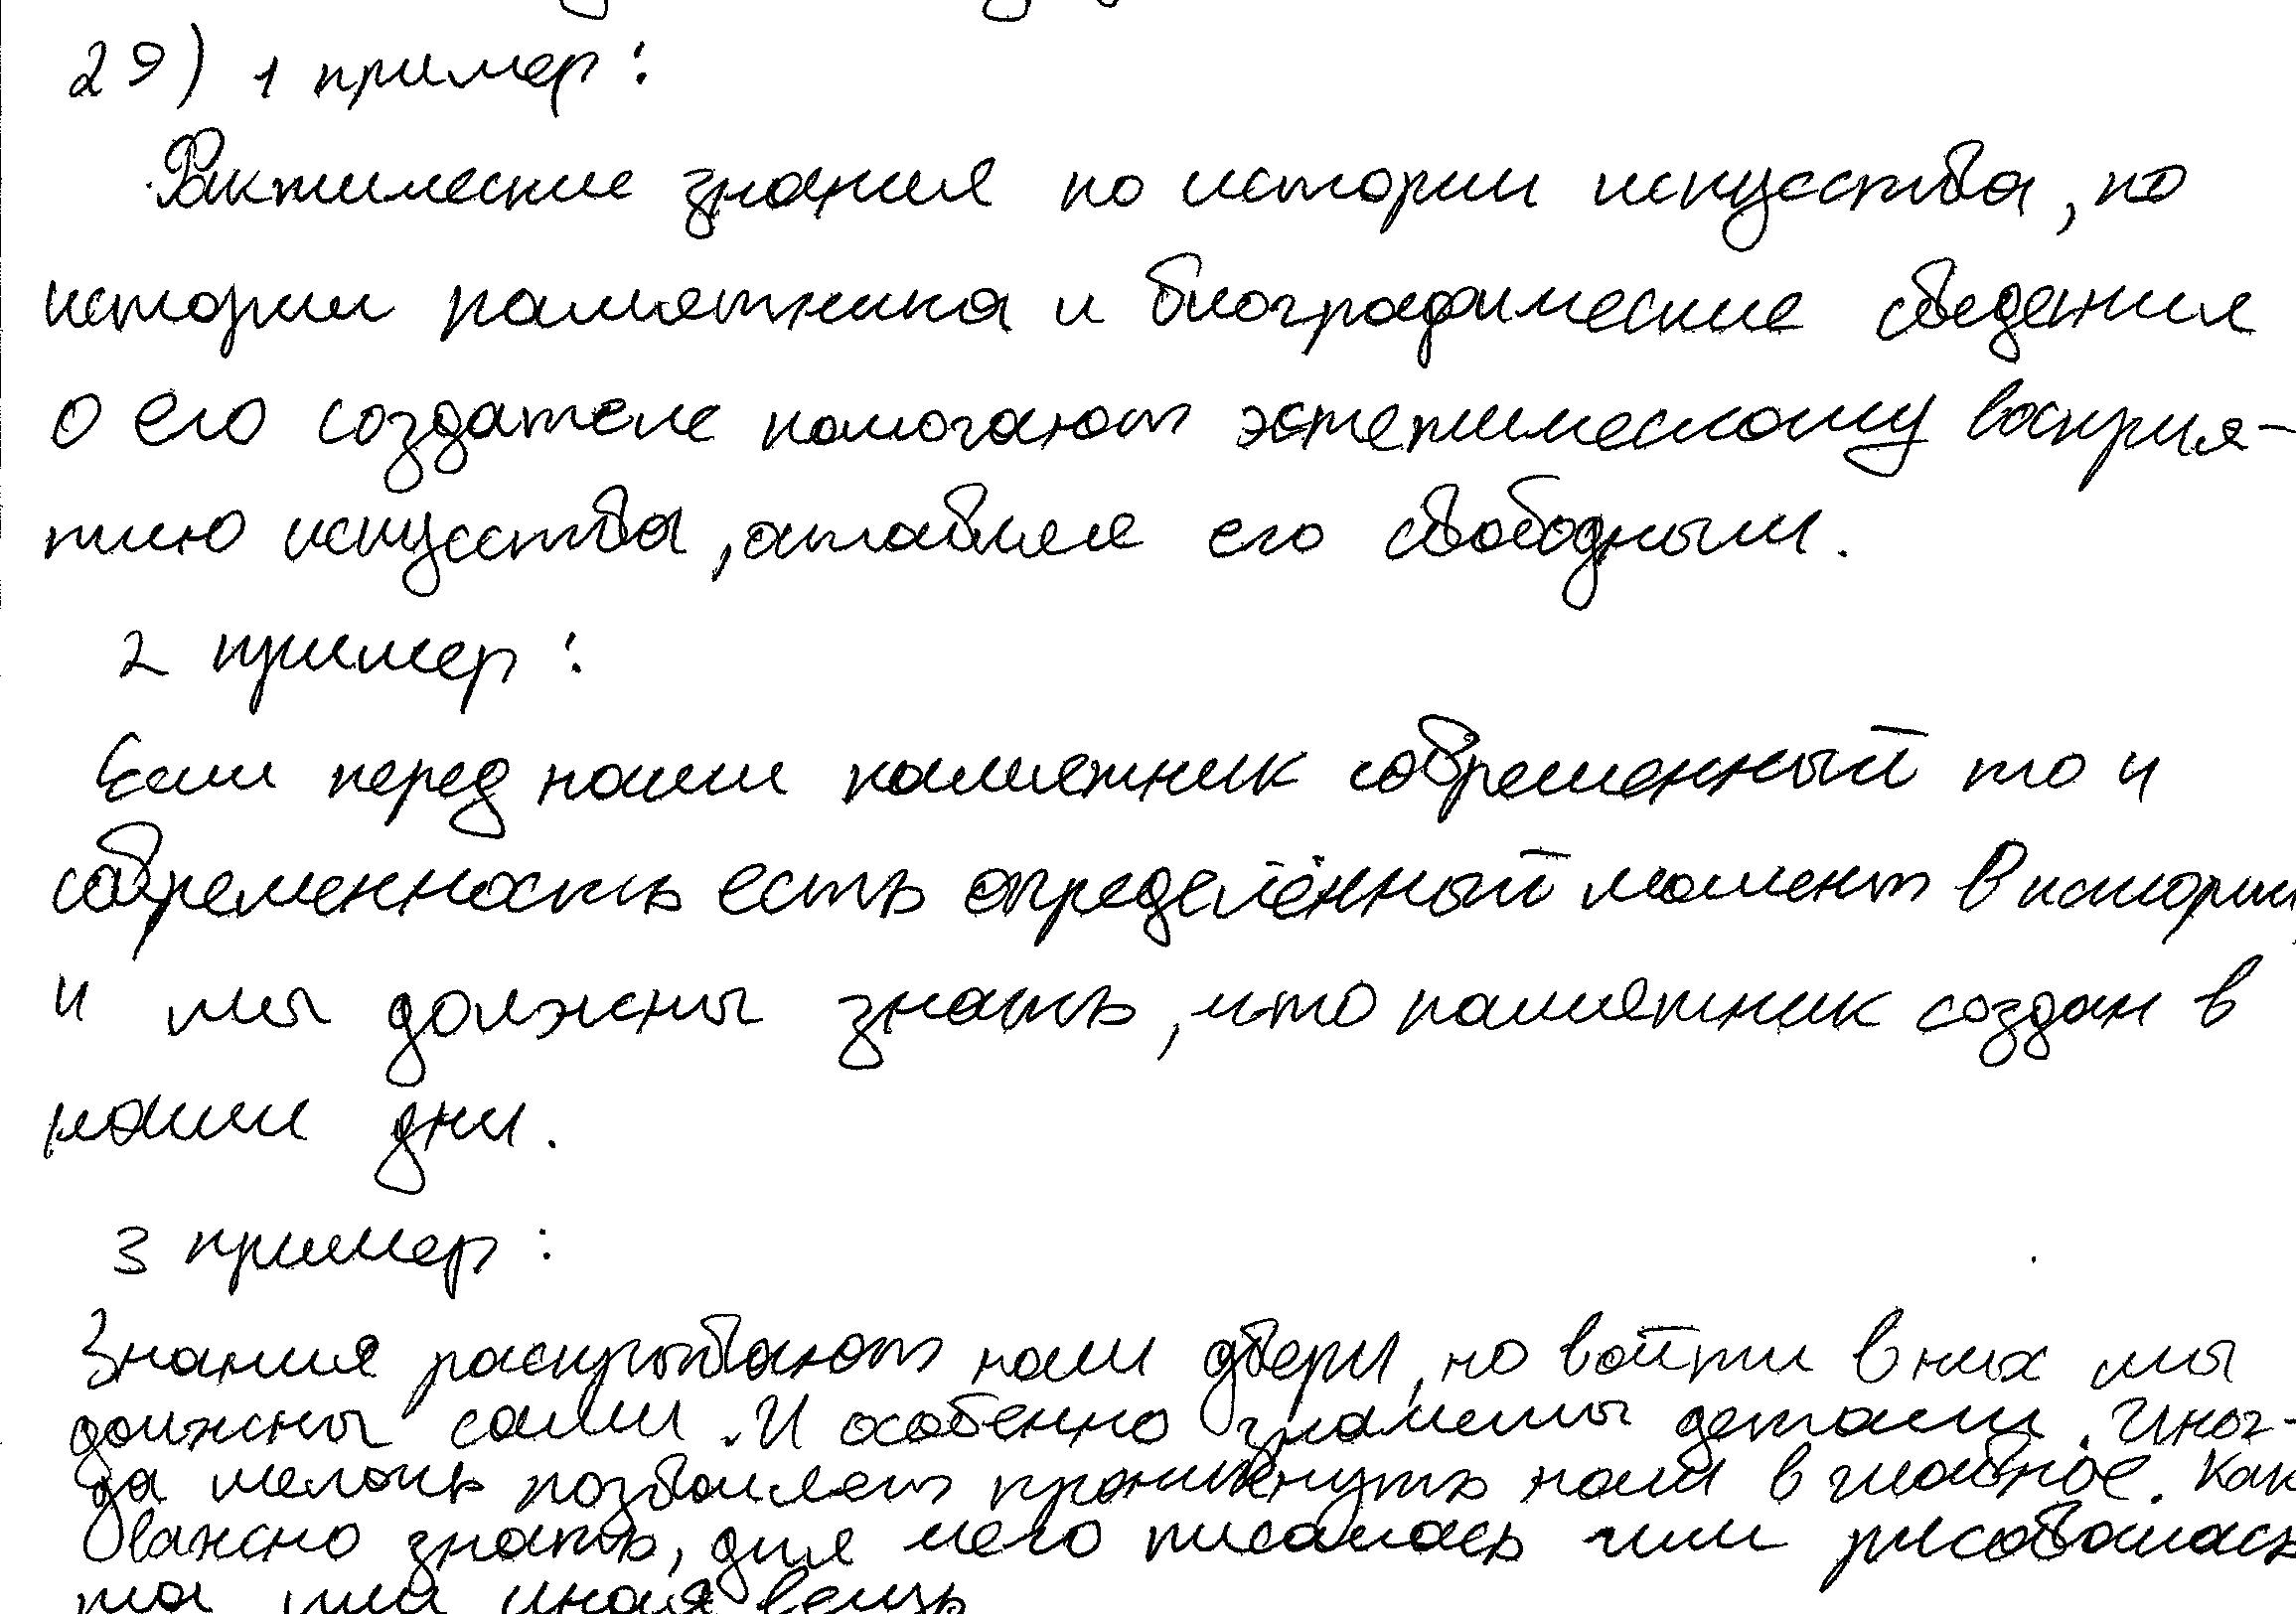 29) 1 пример:
Фактические знания по истории искусства, по
истории памятника и биографические сведения
о его создателе помогают эстетическому восприя-
тию искусства, оставляя его свободным.
2 пример:
Если перед нами памятник современный то и
современность есть определённый момент в истории,
и мы должны знать, что памятник создан в
наши дни.
3 пример:
Знания раскрывают нам двери, но войти в них мы
должны сами. И особенно значимы детали. Иног-
да мелочь позволяет проникнуть нам в главное. Как
важно знать, для чего писалась или рисовалась
та или иная вещь.